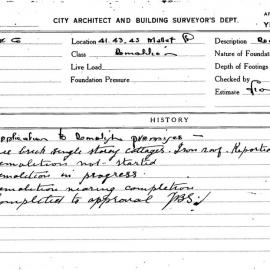 CITY ARCHITECT AND BUILDING SURVEYOR'S DEPT.
Location 41. 43. 45 Mallett
Class Demolition
Live Load
Foundation Pressure
Description
Nature of Foundation
Depth of Footings
Checked by
Estimate
HISTORY
pplication to Demolish premises —
brick single storey cottages. Iron roof.
emolition not started
emolition in progress.
emolition nearing completion
ompleted to approval